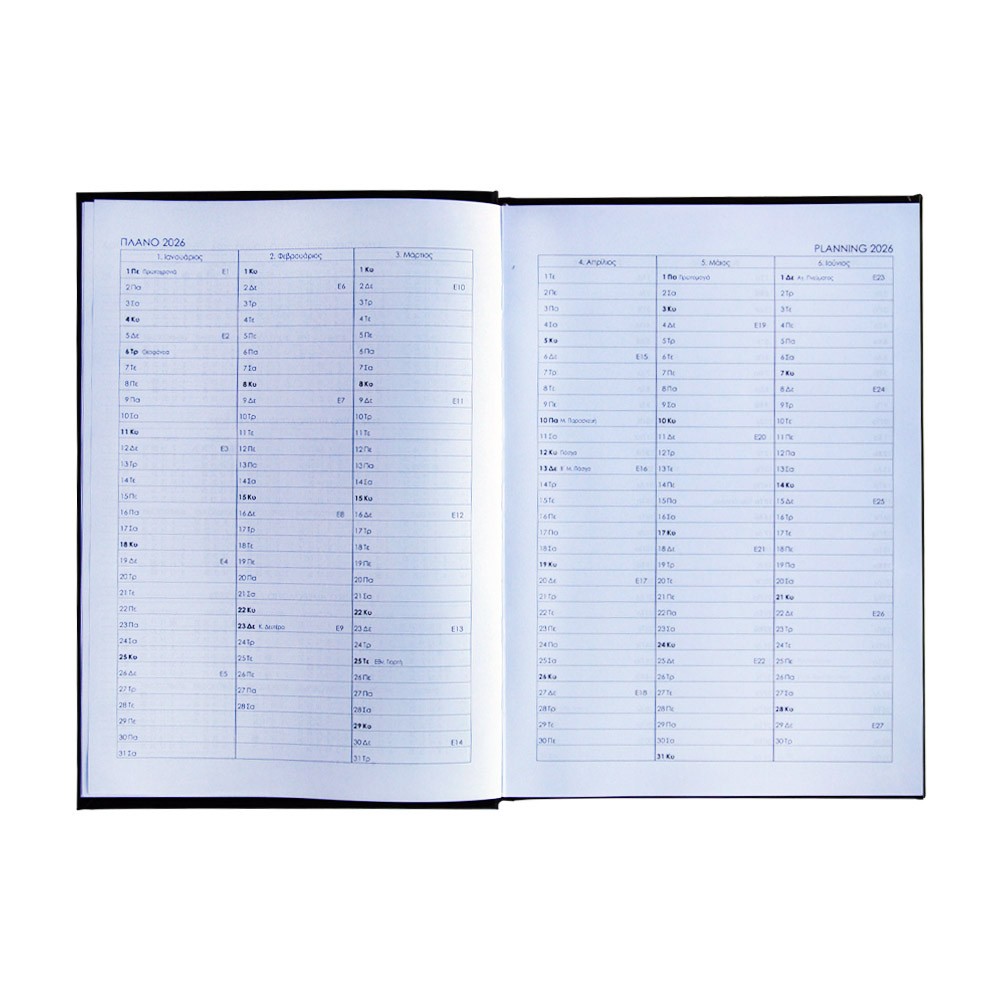 ΠΛΑΝΟ 2026
1. Ιανουάριος
1 Πε Πρωτοχρονιά E1
2 Πα
3 Σα
4 Κυ
5 Δε E2
6 Τρ Θεοφάνεια
7 Τε
8 Πε
9 Πα
10 Σα
11 Κυ
12 Δε E3
13 Τρ
14 Τε
15 Πε
16 Πα
17 Σα
18 Κυ
19 Δε E4
20 Τρ
21 Τε
22 Πε
23 Πα
24 Σα
25 Κυ
26 Δε E5
27 Τρ
28 Τε
29 Πε
30 Πα
31 Σα
2. Φεβρουάριος
1 Κυ
2 Δε E6
3 Τρ
4 Τε
5 Πε
6 Πα
7 Σα
8 Κυ
9 Δε E7
10 Τρ
11 Τε
12 Πε
13 Πα
14 Σα
15 Κυ
16 Δε E8
17 Τρ
18 Τε
19 Πε
20 Πα
21 Σα
22 Κυ
23 Δε Κ. Δευτέρα E9
24 Τρ
25 Τε
26 Πε
27 Πα
28 Σα
3. Μάρτιος
1 Κυ
2 Δε E10
3 Τρ
4 Τε
5 Πε
6 Πα
7 Σα
8 Κυ
9 Δε E11
10 Τρ
11 Τε
12 Πε
13 Πα
14 Σα
15 Κυ
16 Δε E12
17 Τρ
18 Τε
19 Πε
20 Πα
21 Σα
22 Κυ
23 Δε E13
24 Τρ
25 Τε Εθν. Εορτή
26 Πε
27 Πα
28 Σα
29 Κυ
30 Δε E14
31 Τρ
PLANNING 2026
4. Απρίλιος
1 Τε
2 Πε
3 Πα
4 Σα
5 Κυ
6 Δε E15
7 Τρ
8 Τε
9 Πε
10 Πα Μ. Παρασκευή
11 Σα
12 Κυ Πάσχα
13 Δε Κ. Μ. Πάσχα E16
14 Τρ
15 Τε
16 Πε
17 Πα
18 Σα
19 Κυ
20 Δε E17
21 Τρ
22 Τε
23 Πε
24 Πα
25 Σα
26 Κυ
27 Δε E18
28 Τρ
29 Τε
30 Πε
5. Μάιος
1 Πα Πρωτομαγιά
2 Σα
3 Κυ
4 Δε E19
5 Τρ
6 Τε
7 Πε
8 Πα
9 Σα
10 Κυ
11 Δε E20
12 Τρ
13 Τε
14 Πε
15 Πα
16 Σα
17 Κυ
18 Δε E21
19 Τρ
20 Τε
21 Πε
22 Πα
23 Σα
24 Κυ
25 Δε E22
26 Τρ
27 Τε
28 Πε
29 Πα
30 Σα
31 Κυ
6. Ιούνιος
1 Δε Αγ. Πνεύματος E23
2 Τρ
3 Τε
4 Πε
5 Πα
6 Σα
7 Κυ
8 Δε E24
9 Τρ
10 Τε
11 Πε
12 Πα
13 Σα
14 Κυ
15 Δε E25
16 Τρ
17 Τε
18 Πε
19 Πα
20 Σα
21 Κυ
22 Δε E26
23 Τρ
24 Τε
25 Πε
26 Πα
27 Σα
28 Κυ
29 Δε E27
30 Τρ